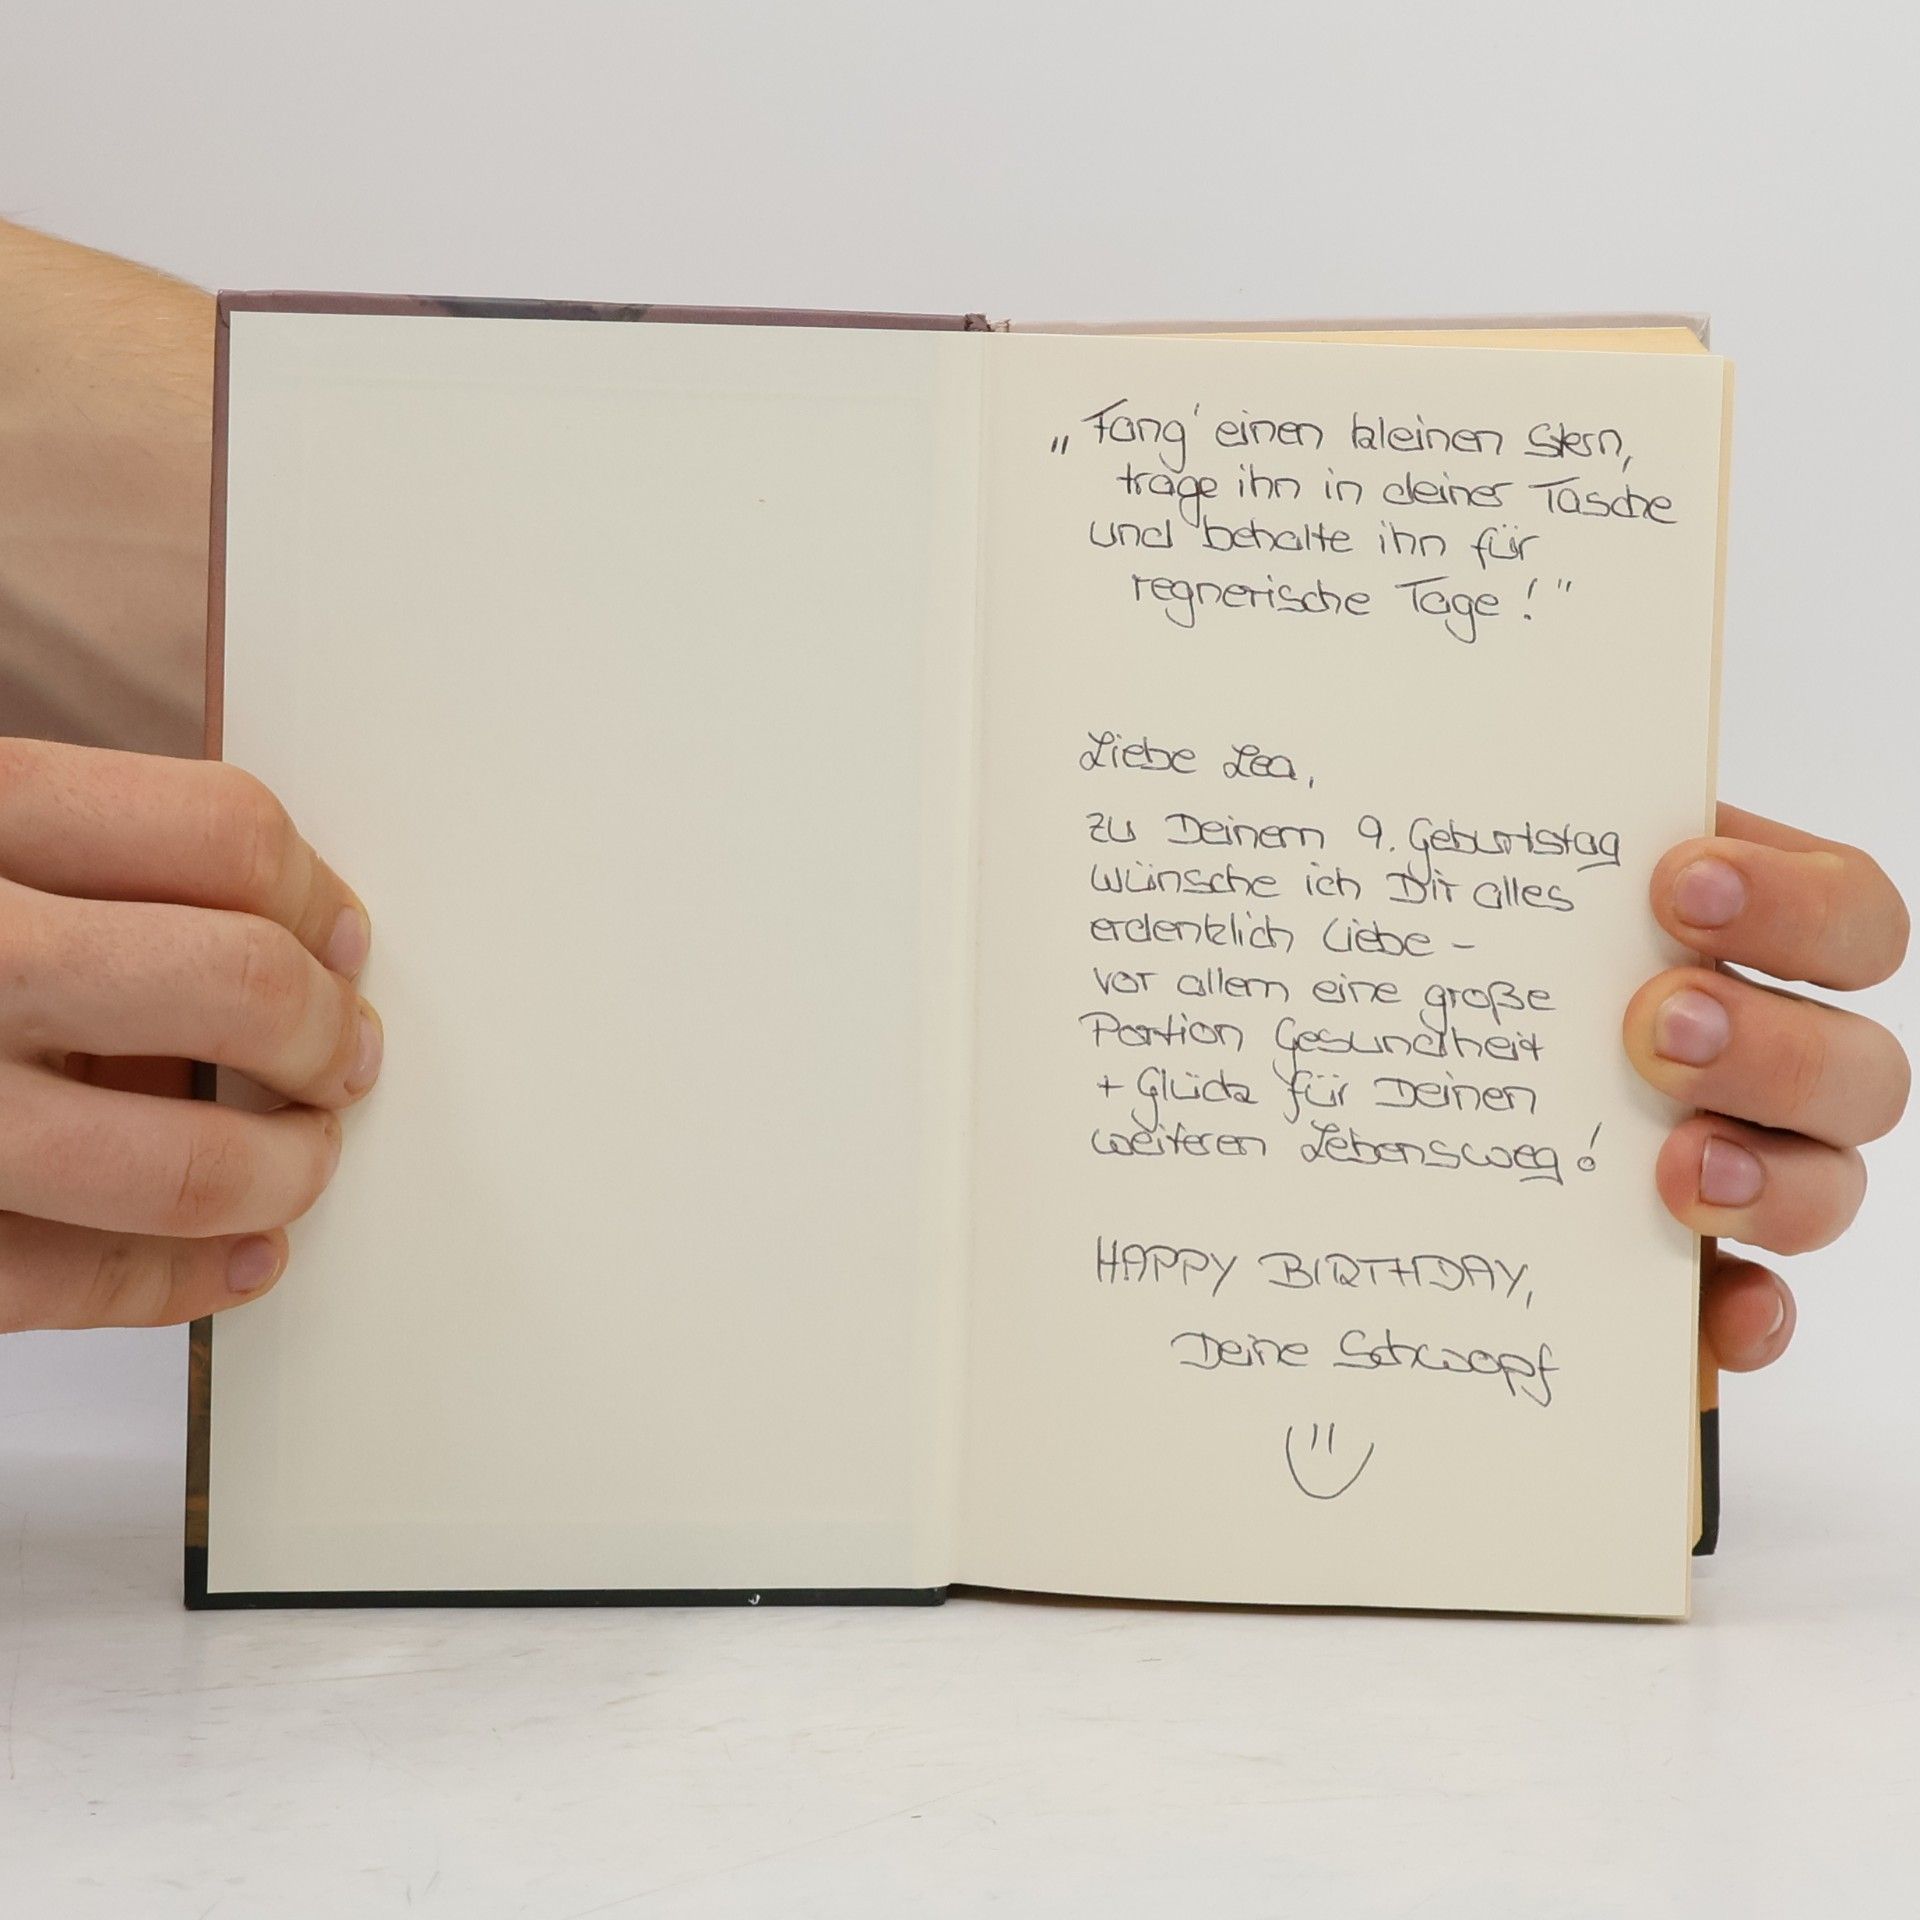 „Fang' einen kleinen Stern,
trage ihn in deiner Tasche
und behalte ihn für
regnerische Tage!"
Liebe Lea,
zu Deinem 9. Geburtstag
wünsche ich Dir alles
erdenklich Liebe -
vor allem eine große
Portion Gesundheit
+ Glück für Deinen
weiteren Lebensweg!
HAPPY BIRTHDAY,
Deine